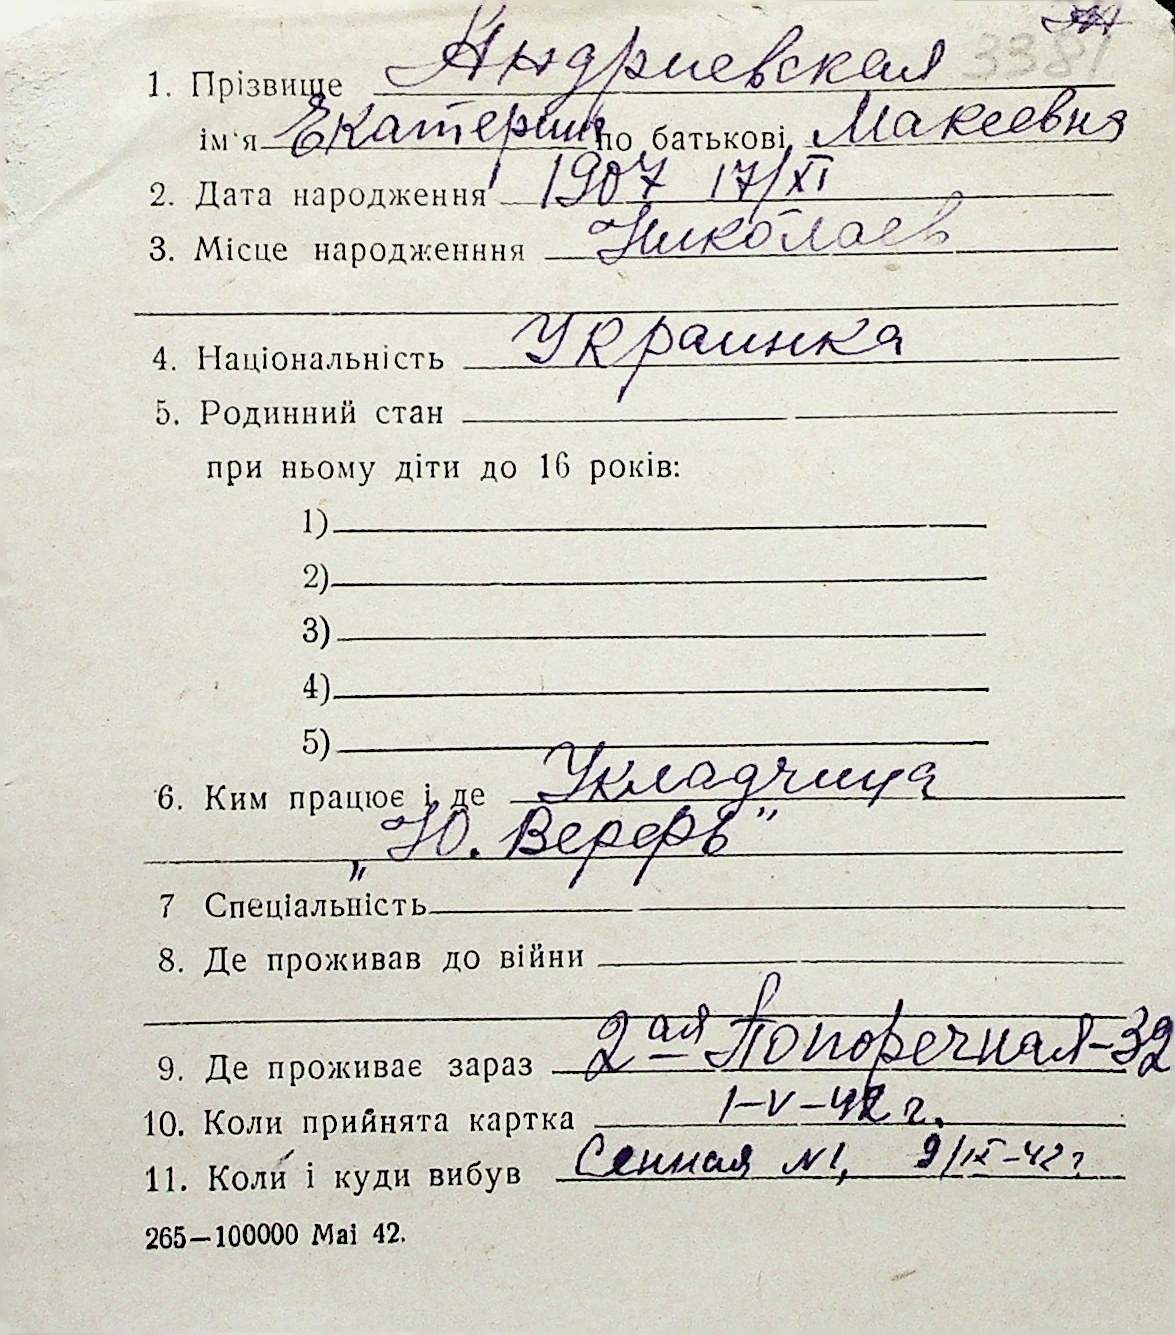 3381
1. Прізвище Андриевская
ім'я Екатерина по батькові Макеевна
2. Дата народження 1907 17/XI
3. Місце народженння Николаев
4. Національність Украинка
5. Родинний стан
при ньому діти до 16 років:
1)
2)
3)
4)
5)
6. Ким працює і де Укладчица
„Ю. Верфь"
7 Спеціальність
8. Де проживав до війни
9. Де проживає зараз 2ая Попоречная-32
10. Коли прийнята картка 1-V-42 г.
11. Коли і куди вибув Сенная №1, 9/IX-42 г
265—100000 Mai 42.